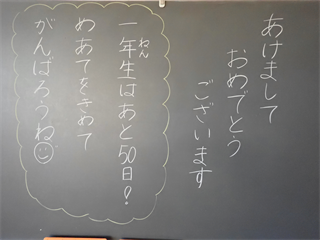 あけまして
おめでとう
ございます
一年生はあと50日!
ねん
めあてを立てて
がんばろうね